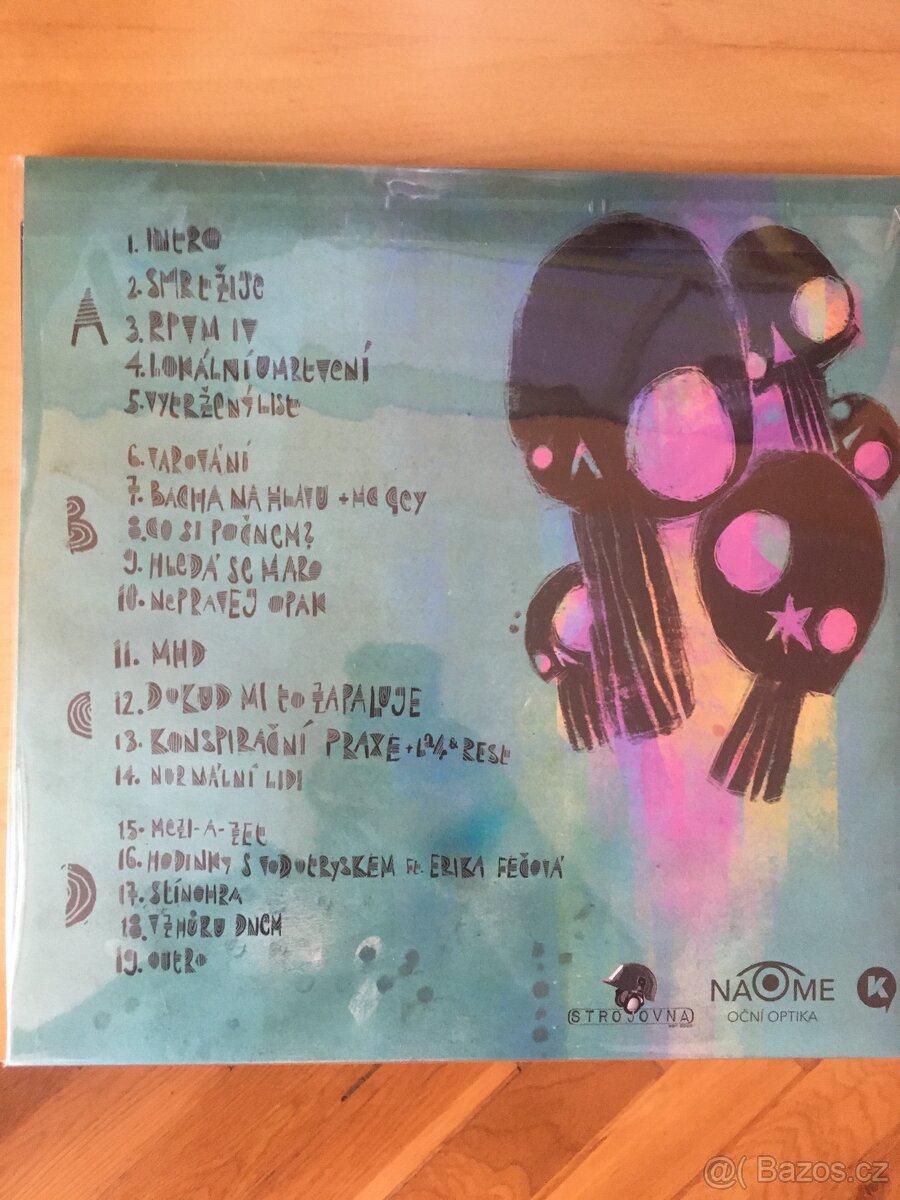 A
1. INTRO
2. SMRT ŽIJE
3. RPVM IV
4. LOKÁLNÍ UMRTVENÍ
5. VYTRŽENÝ LIST
B
6. VAROVÁNÍ
7. BACHA NA HLAVU + MC GEY
8. CO SI POČNEM?
9. HLEDÁ SE MARO
10. NEPRAVEJ OPAK
C
11. MHD
12. DOKUD MI TO ZAPALUJE
13. KONSPIRAČNÍ PRAXE + LA4 & REST
14. NORMÁLNÍ LIDI
D
15. MEZI-A-ZET
16. HODINKY S VODOTRYSKEM FT. ERIKA FEČOVÁ
17. STÍNOHRA
18. VZHŮRU DNEM
19. OUTRO
STROJOVNA
NAOME
OČNÍ OPTIKA
K
@( Bazos.cz